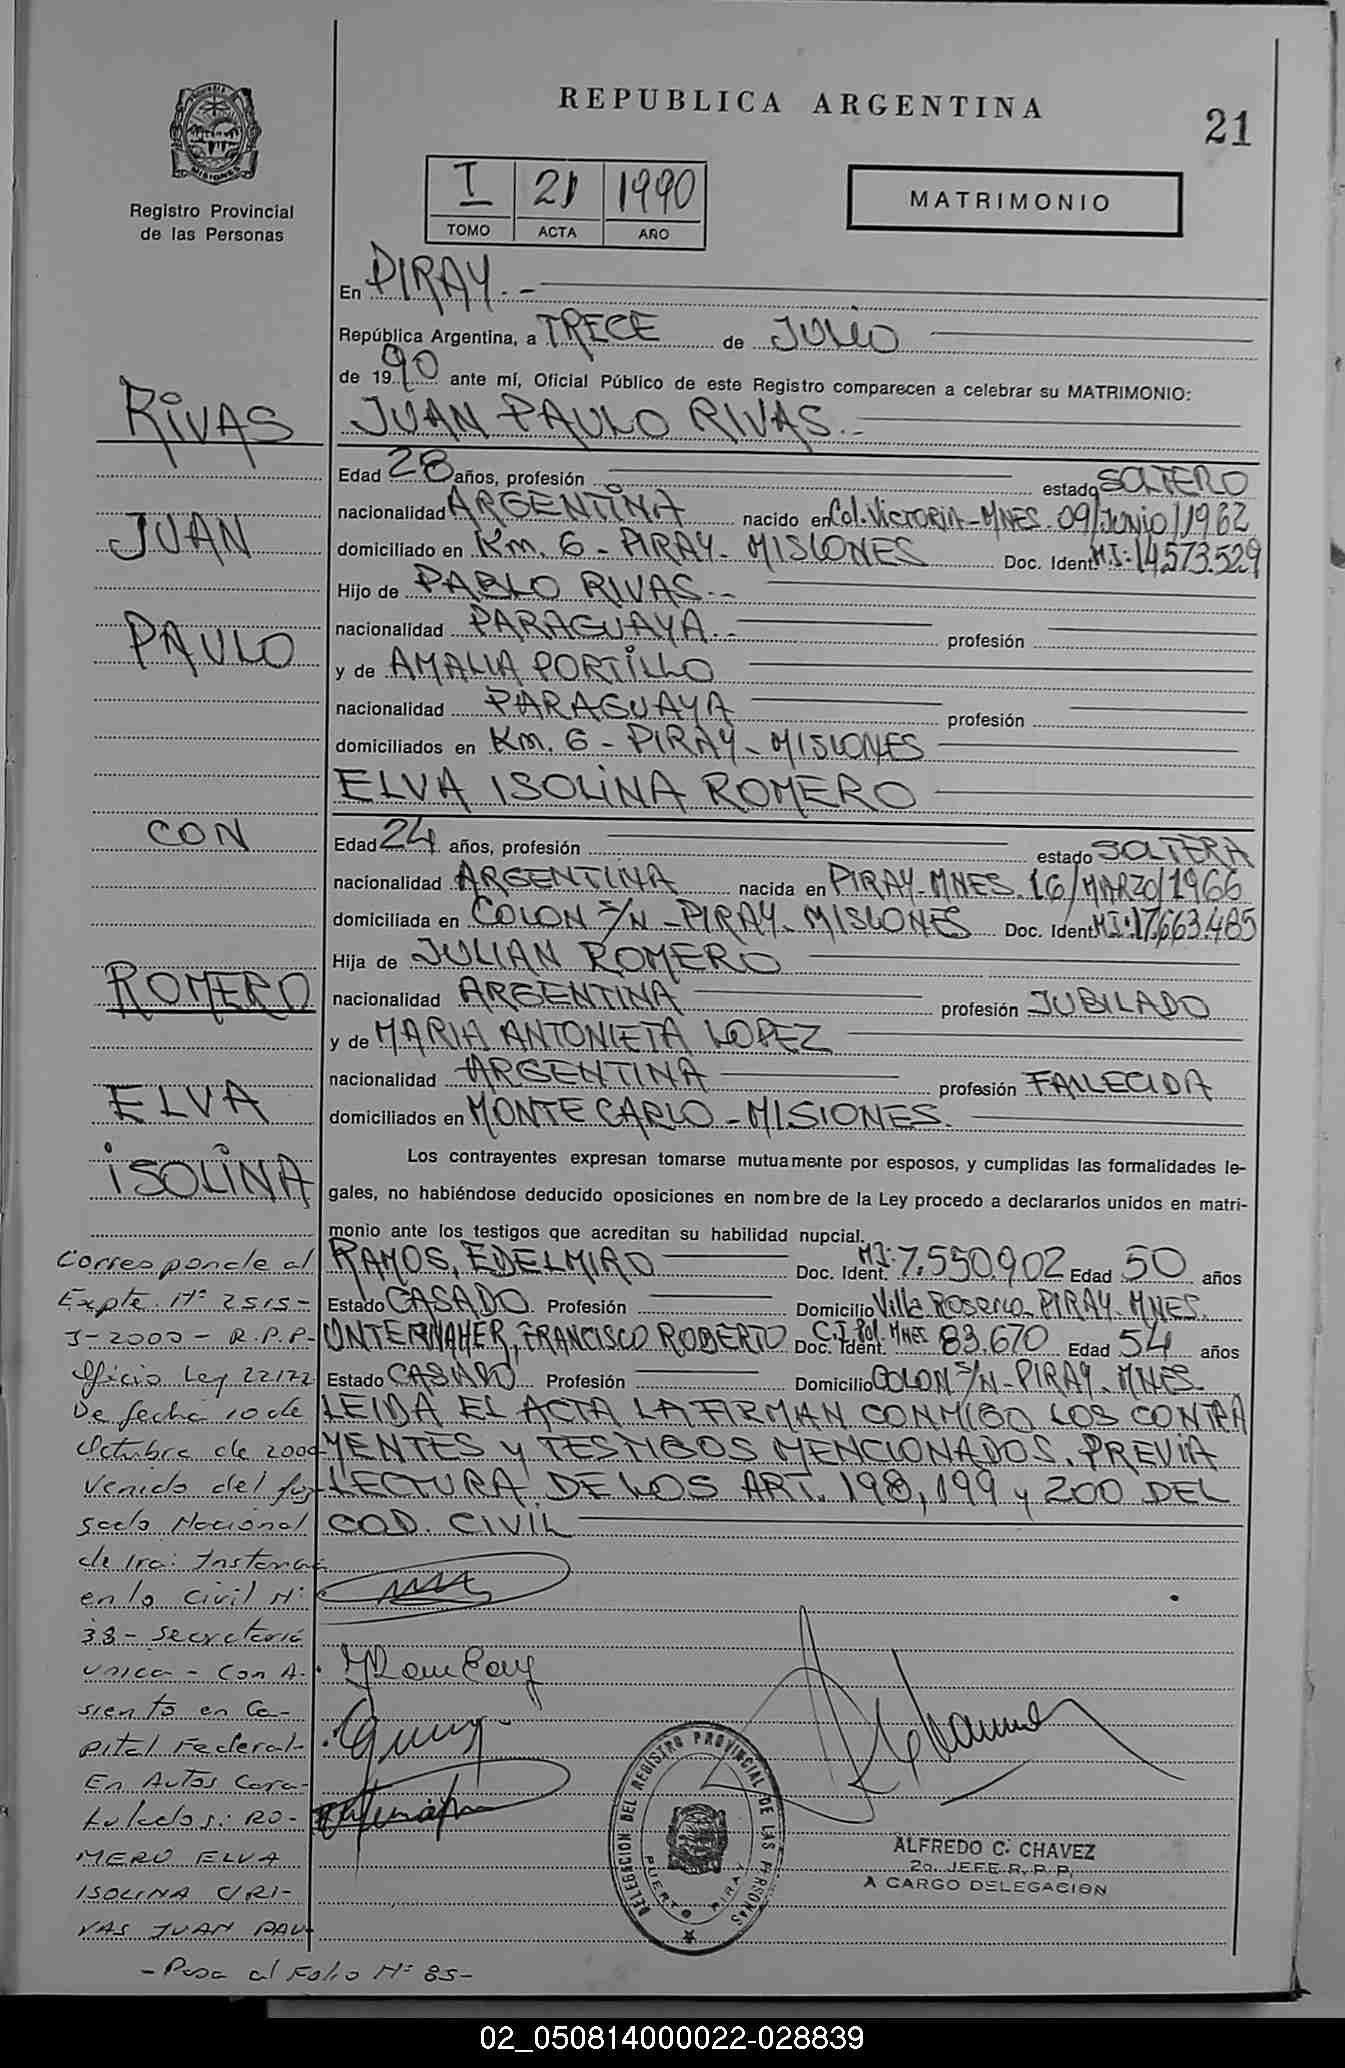 REPUBLICA ARGENTINA
21
Registro Provincial
de las Personas
I 21 1990
TOMO ACTA AÑO
MATRIMONIO
En PIRAY.-
República Argentina, a TRECE de JULIO
de 1990 ante mí, Oficial Público de este Registro comparecen a celebrar su MATRIMONIO:
JUAN PAULO RIVAS.-
Edad 28 años, profesión estado SOLTERO
nacionalidad ARGENTINA nacido en Col. VICTORIA-MNES. 09/JUNIO/1962
domiciliado en Km. 6 - PIRAY - MISIONES Doc. Ident. M.I: 14.573.529
Hijo de PABLO RIVAS.-
nacionalidad PARAGUAYA.- profesión
y de AMALIA PORTILLO
nacionalidad PARAGUAYA profesión
domiciliados en Km. 6 - PIRAY - MISIONES
ELVA ISOLINA ROMERO
Edad 24 años, profesión estado SOLTERA
nacionalidad ARGENTINA nacida en PIRAY-MNES. 16/MARZO/1966
domiciliada en COLON S/N - PIRAY - MISIONES Doc. Ident. M.I: 17.663.485
Hija de JULIAN ROMERO
nacionalidad ARGENTINA profesión JUBILADO
y de MARIA ANTONIETA LOPEZ
nacionalidad ARGENTINA profesión FALLECIDA
domiciliados en MONTE CARLO - MISIONES.
Los contrayentes expresan tomarse mutuamente por esposos, y cumplidas las formalidades le-
gales, no habiéndose deducido oposiciones en nombre de la Ley procedo a declararlos unidos en matri-
monio ante los testigos que acreditan su habilidad nupcial.
RAMOS, EDELMIRO Doc. Ident. M.I: 7.550.902 Edad 50 años
Estado CASADO Profesión Domicilio Villa Rosario PIRAY-MNES.
UNTERNAHER, FRANCISCO ROBERTO Doc. Ident. C.I. Pol. MNES 83.670 Edad 54 años
Estado CASADO Profesión Domicilio COLON S/N - PIRAY - MNES.
LEIDA EL ACTA LA FIRMAN CONMIGO LOS CONTRA
YENTES Y TESTIGOS MENCIONADOS, PREVIA
LECTURA DE LOS ART. 198, 199 y 200 DEL
COD. CIVIL
RIVAS
JUAN
PAULO
CON
ROMERO
ELVA
ISOLINA
Corresponde al
Expte. Nº 2515-
J-2000 - R.P.P-
Oficio Ley 22172
De fecha 10 de
Octubre de 2000
venido del Juz-
gado Nacional
de 1ra: Instancia
en lo Civil Nº:
38 - Secretaria
unica - Con A-
siento en Ca-
pital Federal-
En Autos Cara-
tulados: RO-
MERO ELVA
ISOLINA C/RI-
VAS JUAN PAU
- Pasa al Folio Nº 85 -
DELEGACION DEL REGISTRO PROVINCIAL DE LAS PERSONAS
PUERTO PIRAY
ALFREDO C. CHAVEZ
2o. JEFE R. P. P.
A CARGO DELEGACION
02_050814000022-028839